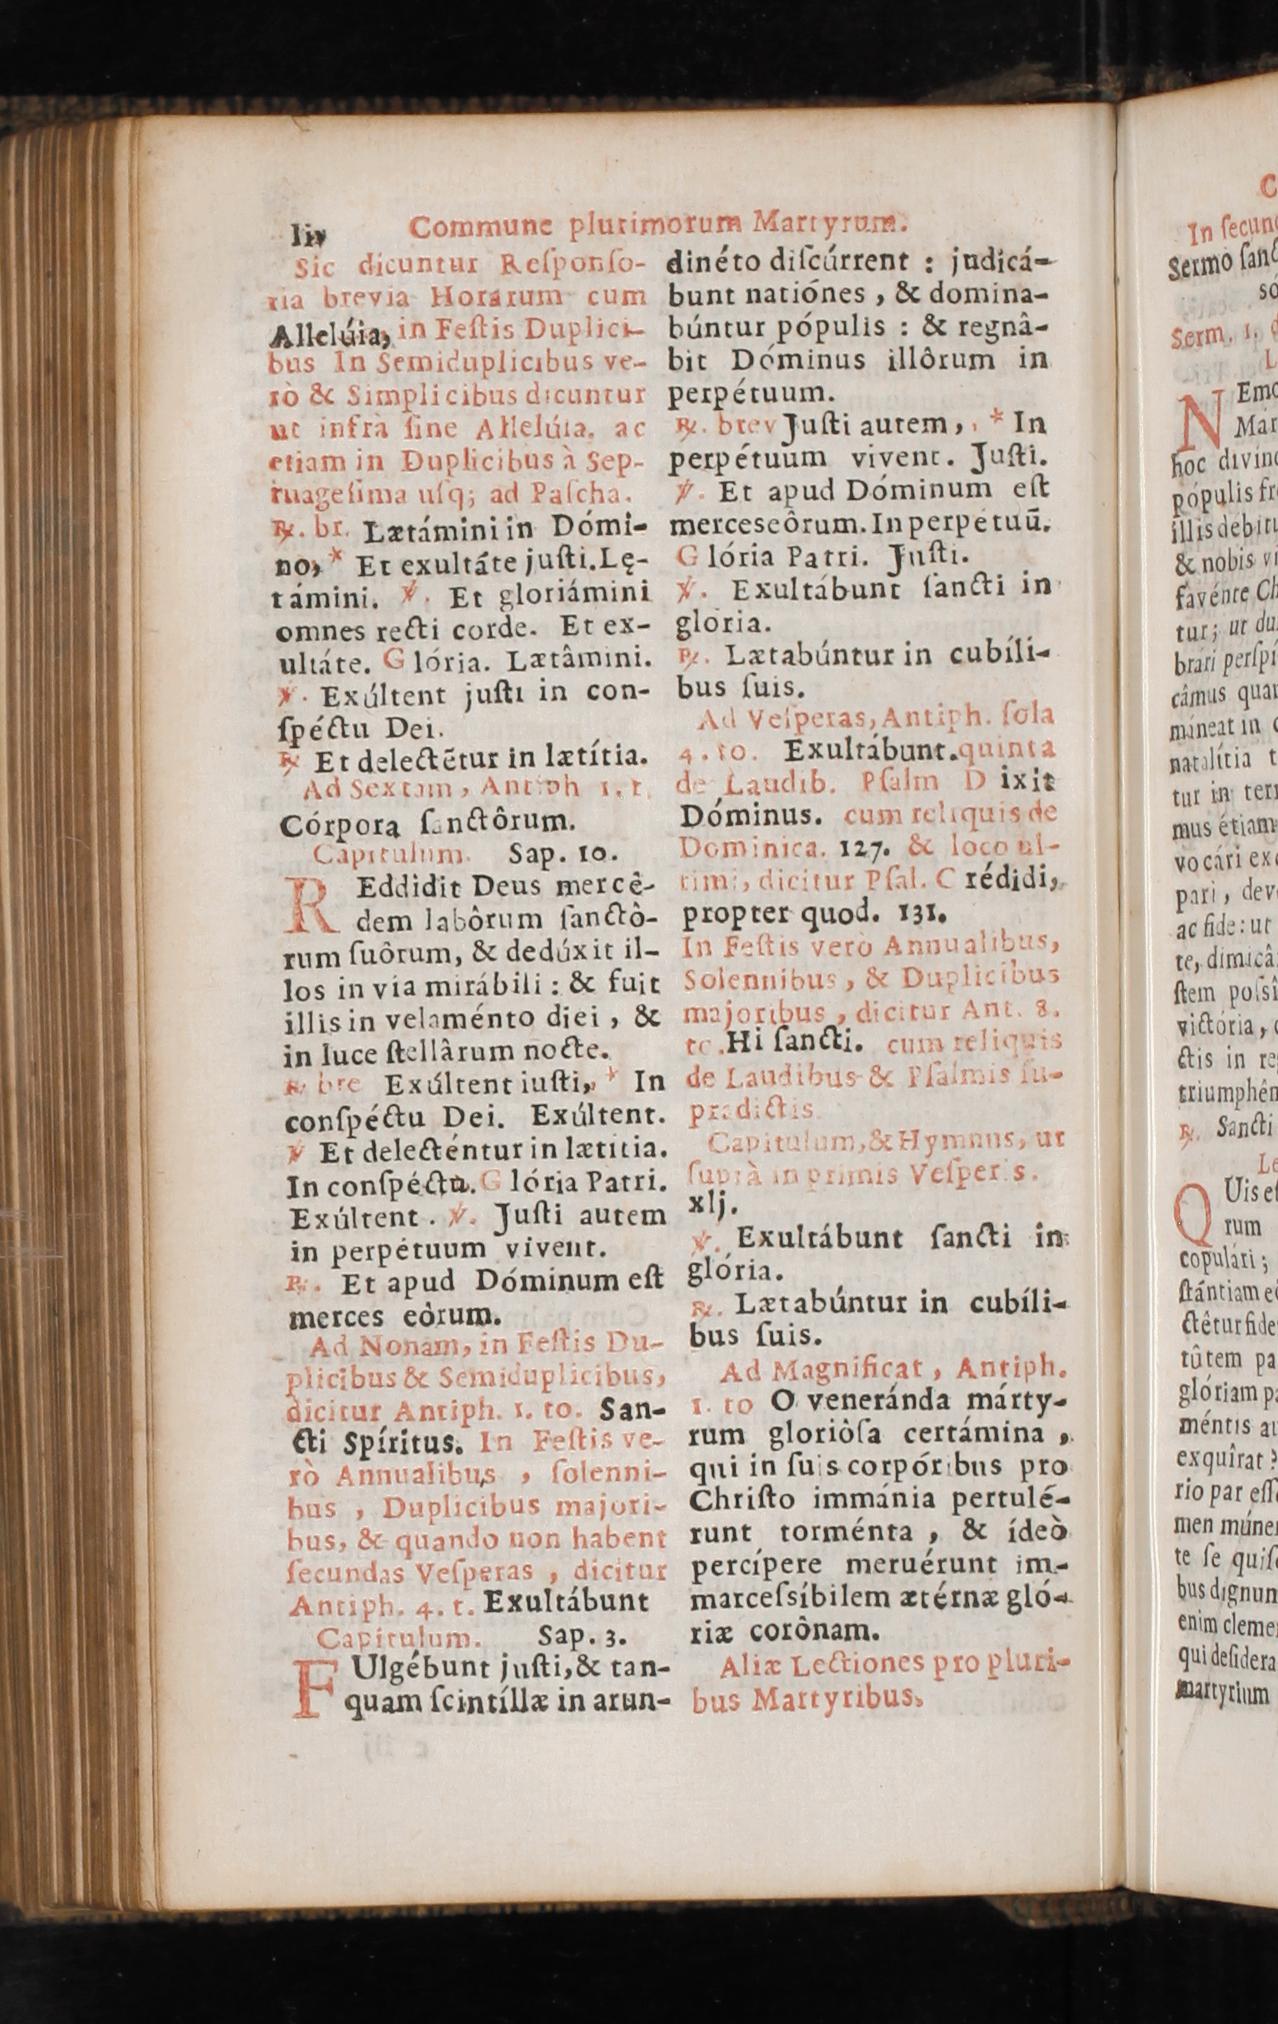 liv
Commune plurimorum Martyrum.
Sic dicuntur Reſponſo-
ria brevia Horarum cum
Allelúia, in Feſtis Duplici-
bus In Semiduplicibus ve-
rò & Simplicibus dicuntur
ut infrà ſine Allelúia. ac
etiam in Duplicibus à Sep-
tuageſima uſq; ad Paſcha.
℟. br. Lætámini in Dómi-
no, * Et exultáte juſti. Lę-
támini. ℣. Et gloriámini
omnes recti corde. Et ex-
ultáte. Glória. Lætâmini.
℣. Exúltent juſti in con-
ſpéctu Dei.
℟ Et delectẽtur in lætítia.
Ad Sextam, Antiph 1. t.
Córpora ſanctôrum.
Capitulum. Sap. 10.
REddidit Deus mercê-
dem labôrum ſanctò-
rum ſuôrum, & dedúxit il-
los in via mirábili : & fuit
illis in velaménto diei , &
in luce ſtellârum nocte.
℟ bre Exúltent iuſti, * In
conſpéctu Dei. Exúltent.
℣ Et delecténtur in lætitia.
In conſpéctu. Glória Patri.
Exúltent . ℣. Juſti autem
in perpétuum vivent.
℟. Et apud Dóminum eſt
merces eòrum.
Ad Nonam, in Feſtis Du-
plicibus & Semiduplicibus,
dicitur Antiph. 1. to. San-
cti Spíritus. In Feſtis ve-
rò Annualibus , ſolenni-
bus , Duplicibus majori-
bus, & quando non habent
ſecundas Veſperas , dicitur
Antiph. 4. t. Exultábunt
Capitulum. Sap. 3.
FUlgébunt juſti, & tan-
quam ſcintíllæ in arun-
dinéto diſcúrrent : judicá-
bunt natiónes , & domina-
búntur pópulis : & regnâ-
bit Dóminus illôrum in
perpétuum.
℟. brev Juſti autem, * In
perpétuum vivent. Juſti.
℣. Et apud Dóminum eſt
merces eôrum. In perpetuū.
Glória Patri. Juſti.
℣. Exultábunt ſancti in
glória.
℟. Lætabúntur in cubíli-
bus ſuis.
Ad Veſperas, Antiph. ſola
4. to. Exultábunt. quinta
de Laudib. Pſalm Dixit
Dóminus. cum reliquis de
Dominica. 127. & loco ul-
timi, dicitur Pſal. Crédidi,
propter quod. 131.
In Feſtis verò Annualibus,
Solennibus , & Duplicibus
majoribus , dicitur Ant. 8.
to. Hi ſancti. cum reliquis
de Laudibus & Pſalmis ſu-
prædictis
Capitulum, & Hymnus, ut
ſuprà in primis Veſperis.
xlj.
℣. Exultábunt ſancti in
glória.
℟. Lætabúntur in cubíli-
bus ſuis.
Ad Magnificat , Antiph.
1. to O veneránda márty-
rum gloriôſa certámina ,
qui in ſuis corpóribus pro
Chriſto immánia pertulé-
runt torménta , & ídeò
percípere meruérunt im-
marceſsíbilem ætérnæ gló-
riæ corônam.
Aliæ Lectiones pro pluri-
bus Martyribus.
C
In ſecun
Sermo ſanc
Serm. 1.
L
NEmo
Mar
hoc divin
pópulis fr
illis debitu
& nobis vi
favénte Ch
tur; ut du
brari perſpi
câmus quan
máneat in
natalítia t
tur in terr
mus étiam
vocári exc
pari , dev
ac fide: ut
te, dimicâ
ſtem poſsi
victória,
ctis in re
triumphên
℟. Sancti
Le
QUis eſ
rum
copulári ;
ſtántiam e
ctêtur fide
tûtem pa
glóriam pa
méntis au
exquîrat ?
rio par eſſe
men múner
te ſe quiſ
bus dignun
enim cleme
qui deſidera
martyrium